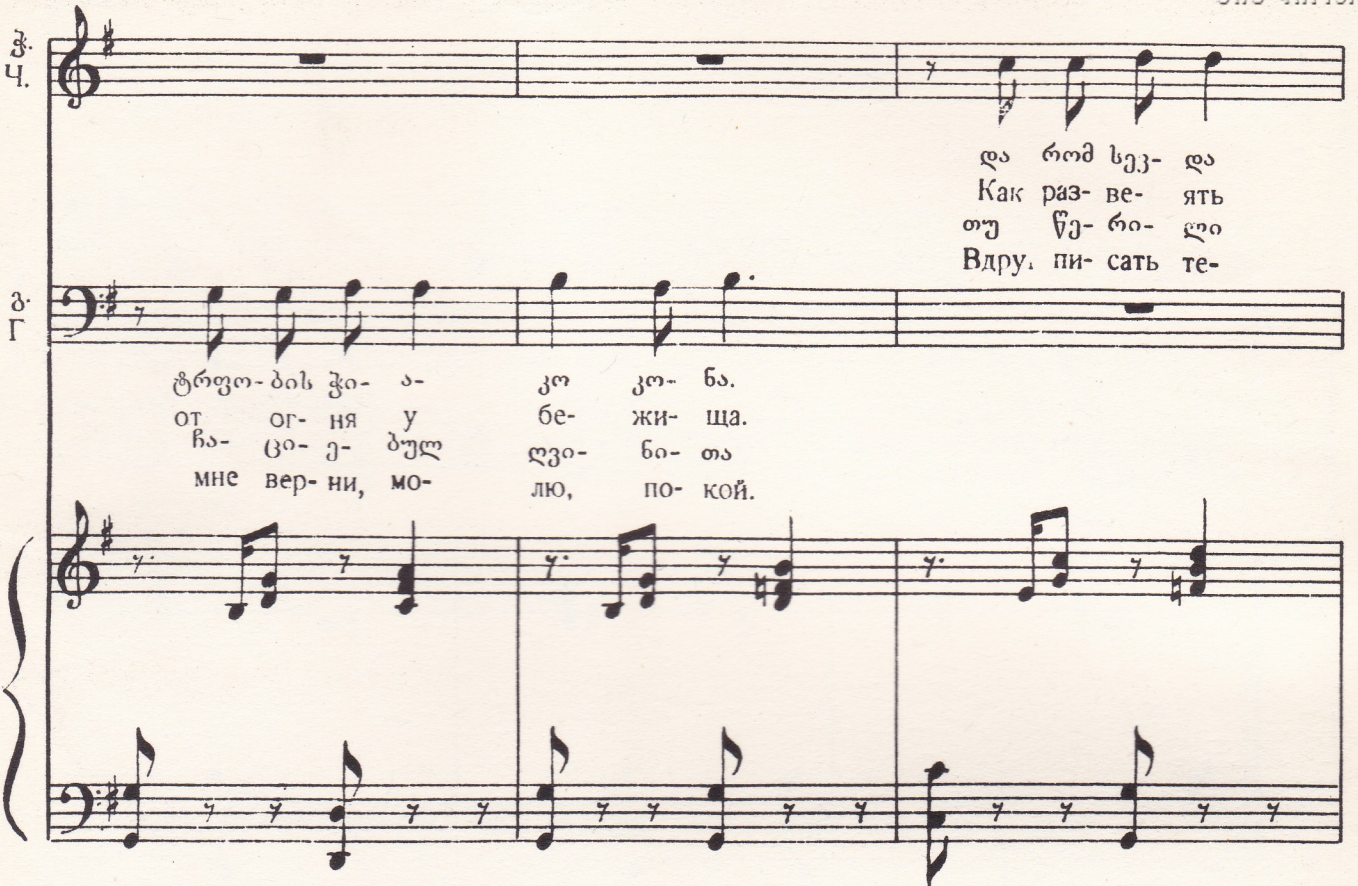 ჭ.
Ч.
და რომ სევ- და
Как раз- ве- ять
თუ წე- რი- ლი
Вдру. пи- сать те-
გ.
Г
ტრფო- ბის ჭი- ა- კო კო- ნა.
от ог- ня у бе- жи- ща.
ჩა- ცი- ე- ბულ ღვი- ნი- თა
мне вер- ни, мо- лю, по- кой.